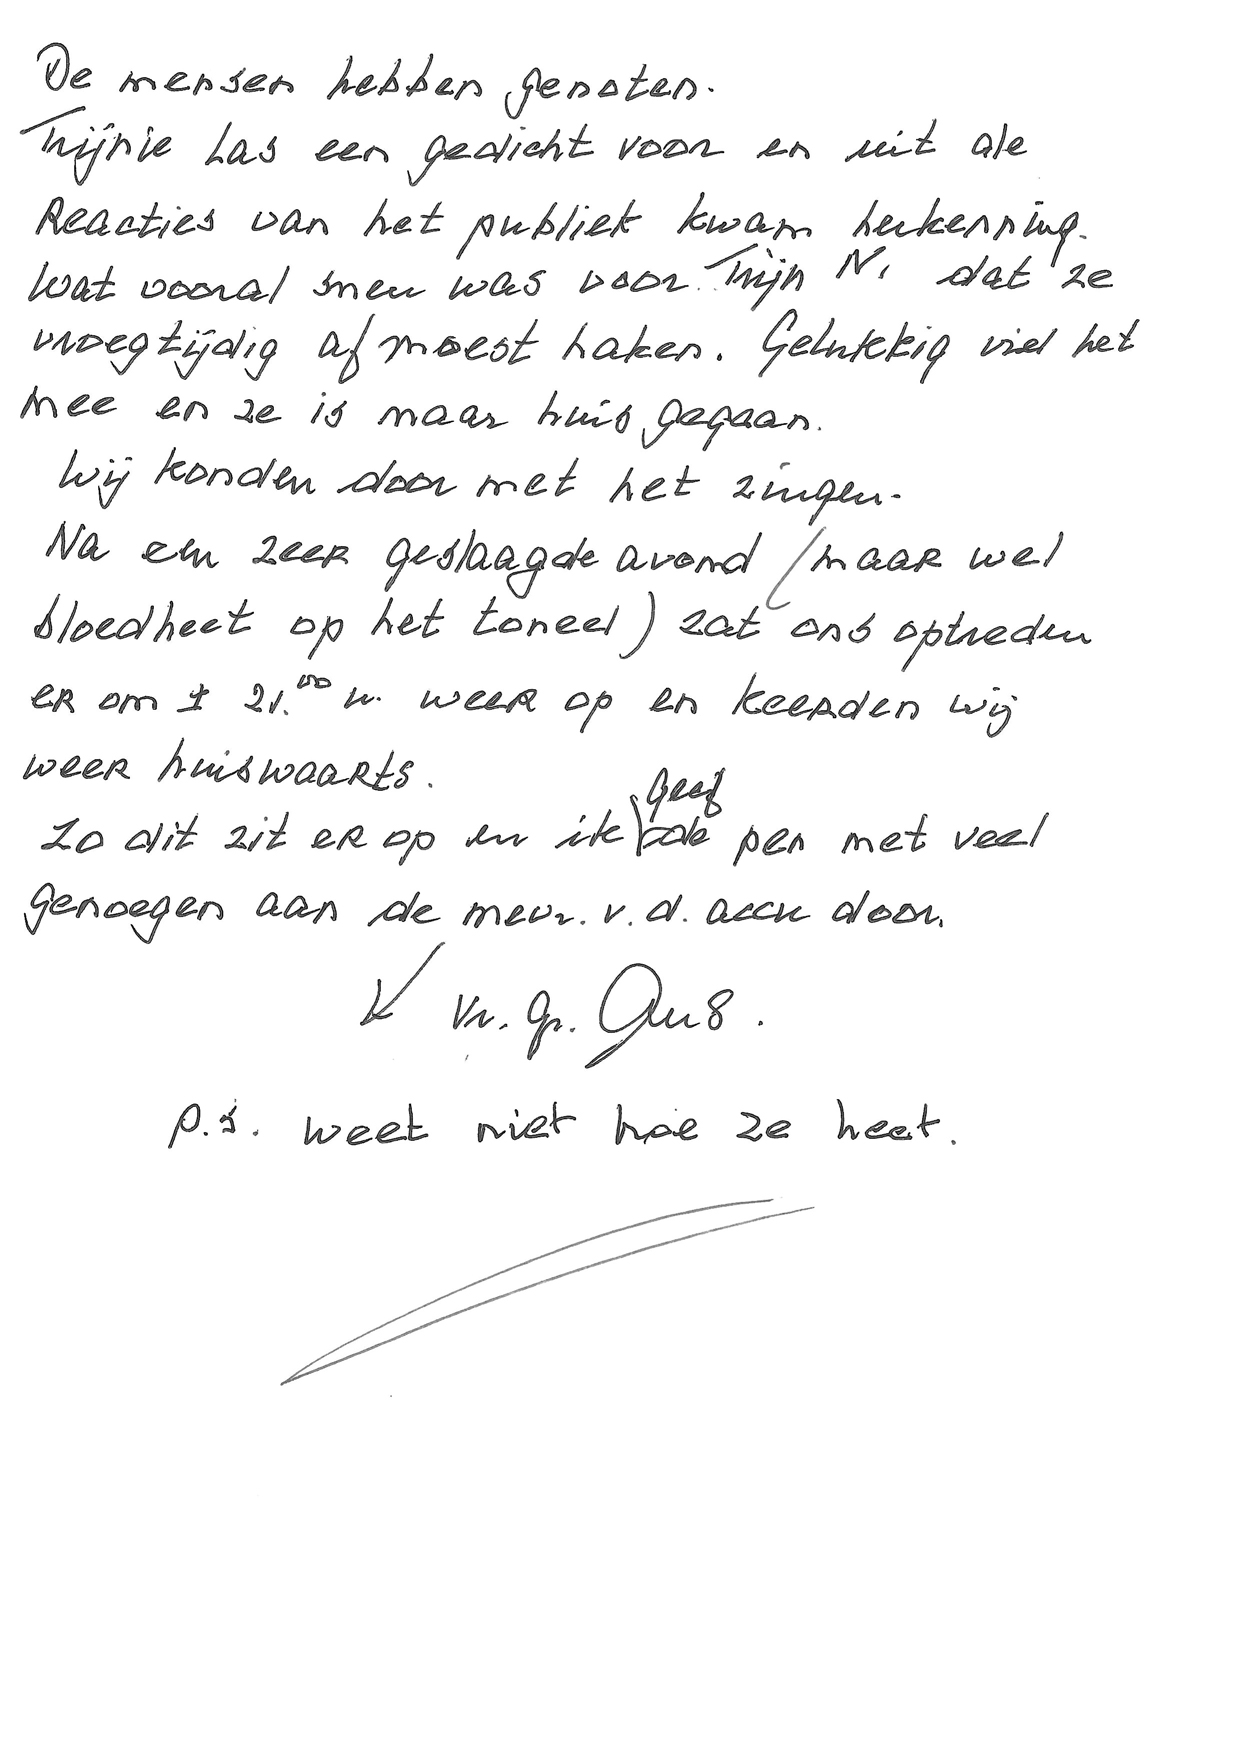 De mensen hebben genoten.
Trijnie las een gedicht voor en uit de
Reacties van het publiek kwam herkenning.
Wat vooral sneu was voor Trijn N. dat ze
vroegtijdig af moest haken. Gelukkig viel het
mee en ze is maar huis gegaan.
Wij konden door met het zingen.
Na een zeer geslaagde avond (maar wel
bloedheet op het toneel) zat ons optreden
er om ± 21.00 u. weer op en keerden wij
weer huiswaarts.
Zo dit zit er op en ik geef de pen met veel
genoegen aan de mevr. v.d. accu door.
Vr. Gr. Gus.
P.S. weet niet hoe ze heet.